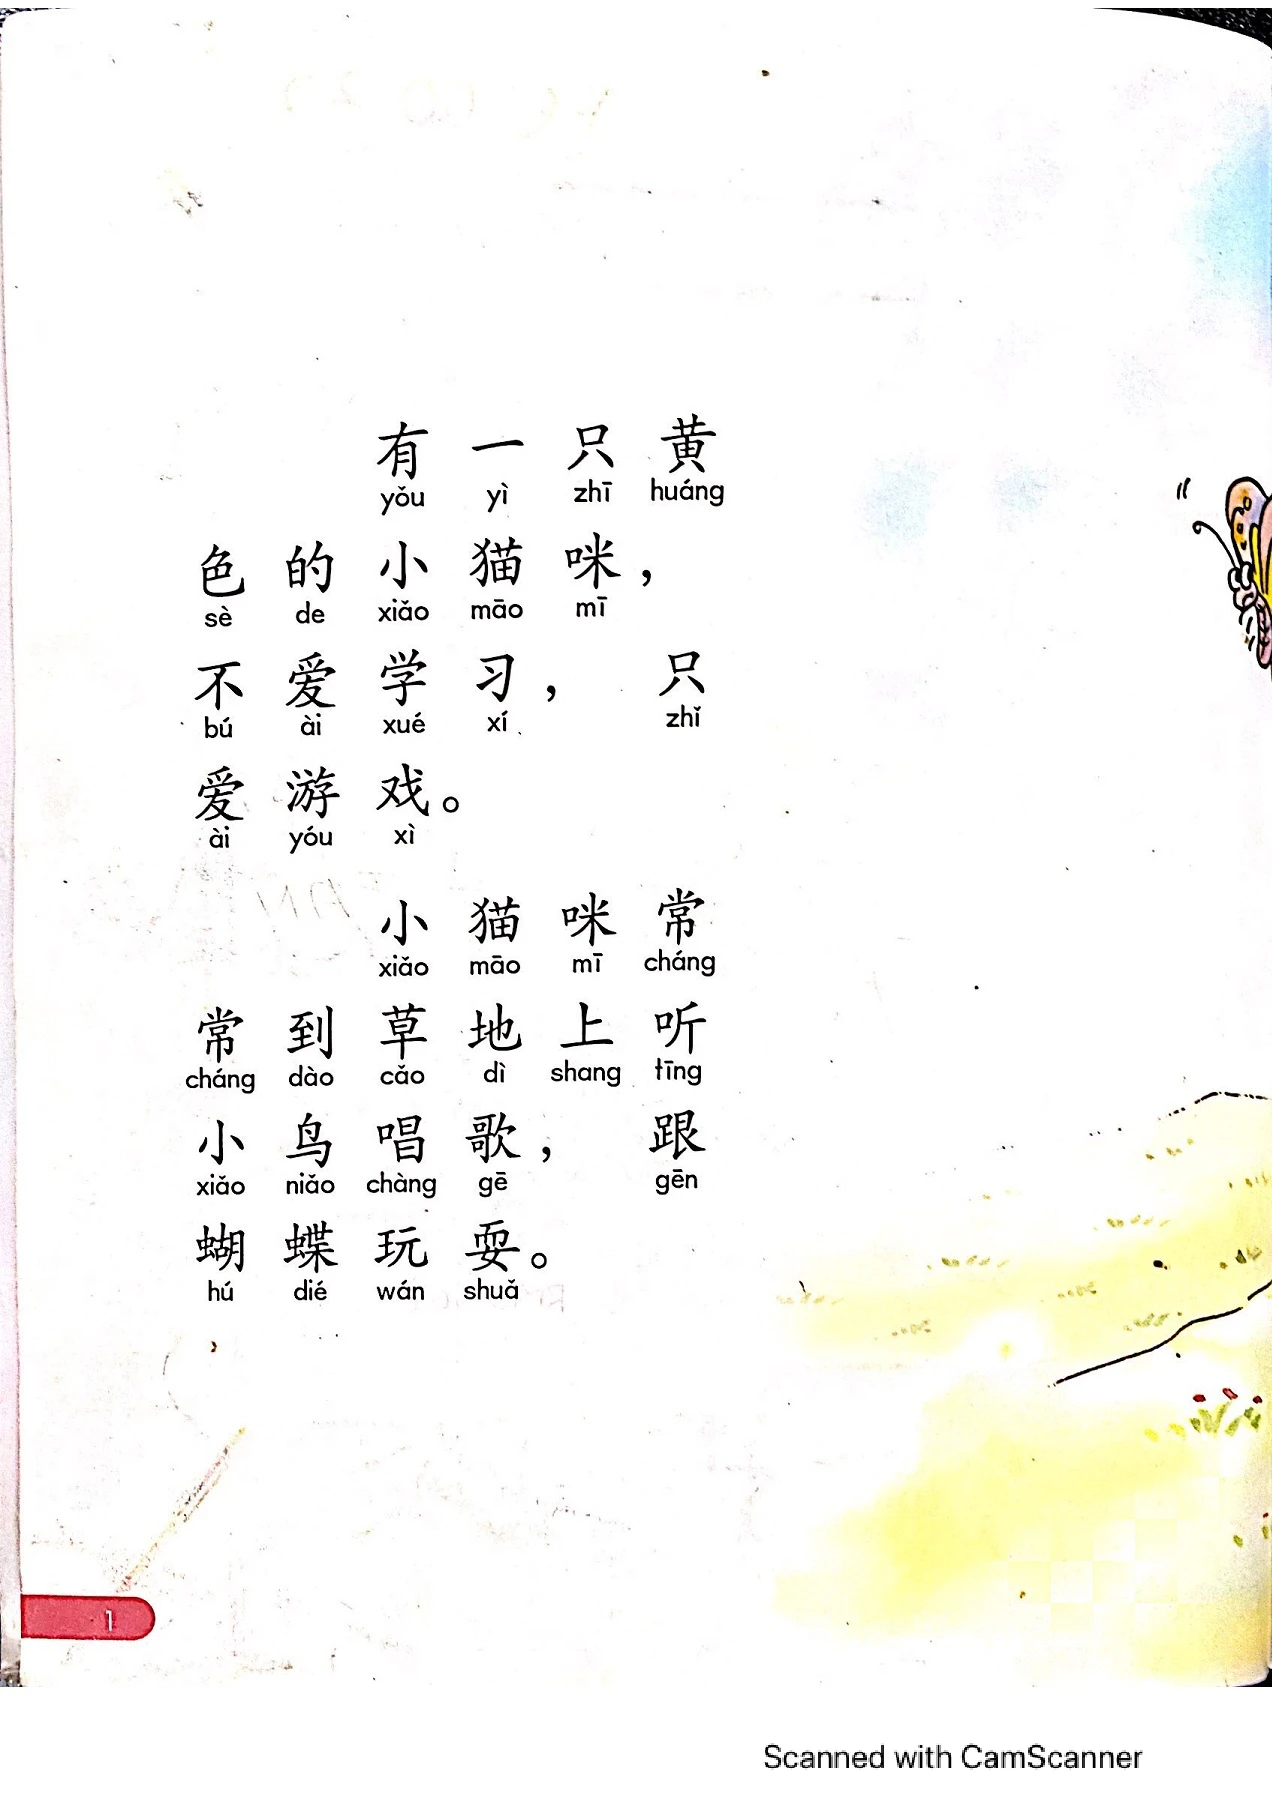 有 一 只 黄
yǒu yì zhī huáng
色 的 小 猫 咪，
sè de xiǎo māo mī
不 爱 学 习， 只
bú ài xué xí zhǐ
爱 游 戏。
ài yóu xì
小 猫 咪 常
xiǎo māo mī cháng
常 到 草 地 上 听
cháng dào cǎo dì shang tīng
小 鸟 唱 歌， 跟
xiǎo niǎo chàng gē gēn
蝴 蝶 玩 耍。
hú dié wán shuǎ
1
Scanned with CamScanner